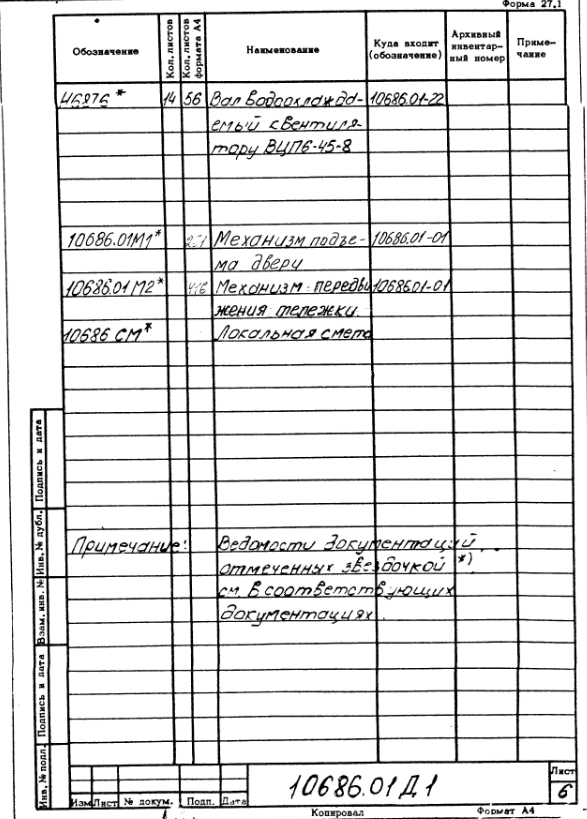 Форма 27.1
Обозначение Кол. листов Кол. листов формата А4 Наименование Куда входит (обозначение) Архивный инвентарный номер Примечание
46976* 14 56 Вал водоохлажда- 10686.01-22
емый к вентиля-
тору ВЦП6-45-8
10686.01М1* Механизм подъе- 10686.01-01
ма двери
10686.01М2* Механизм передви 10686.01-01
жения тележки.
10686 СМ* Локальная смета
Примечание: Ведомости документаций,
отмеченных звездочкой *)
см. в соответствующих
документациях.
Инв. № подл. Подпись и дата Взам. инв. № Инв. № дубл. Подпись и дата
Изм Лист № докум. Подп. Дата
10686.01 Д.1
Лист
6
Копировал Формат А4